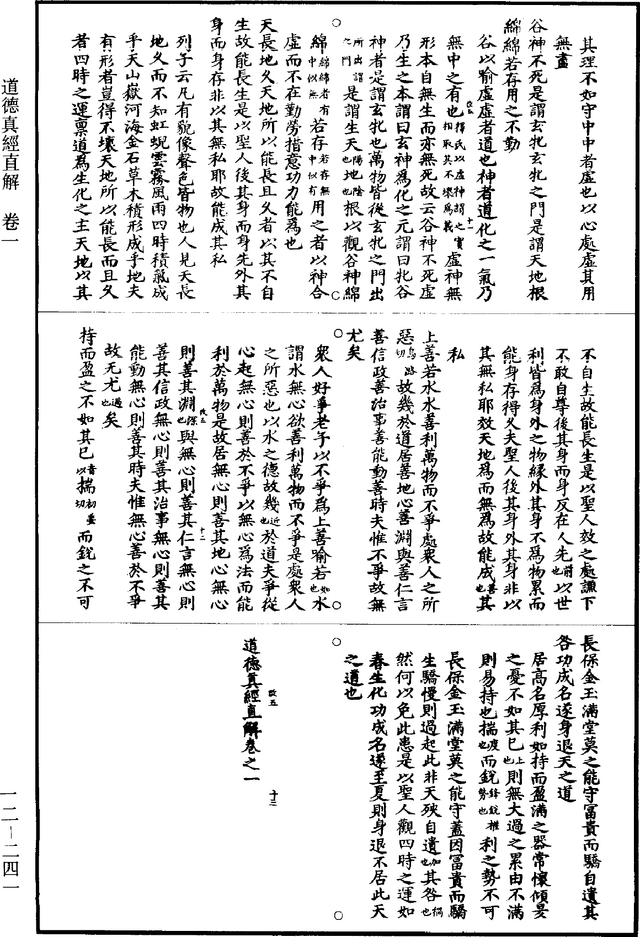 其理不如守中中者虛也以心處虛其用
無盡
谷神不死是謂玄牝玄牝之門是謂天地根
綿綿若存用之不勤
谷以喻虛虛者道也神者道化之一氣乃
無中之有也釋氏以虛神謂之實相取其不壞為義虛神無
形本自無生而亦無死故云谷神不死虛
乃生之本謂曰玄神為化之元謂曰牝谷
神者是謂玄牝也萬物皆從玄牝之門出
所出謂之門是謂生天陽也地陰也根以觀谷神綿
綿綿綿者有中似無若存若存無中似有用之者以神合
虛而不在勤勞措意功力能為也
天長地久天地所以能長且久者以其不自
生故能長生是以聖人後其身而身先外其
身而身存非以其無私耶故能成其私
列子云凡有貌像聲色皆物也人見天長
地久而不知虹蜺雲霧風雨四時積氣成
乎天山嶽河海金石草木積形成乎地夫
有形者豈得不壞天地所以能長而且久
者四時之運稟道為生化之主天地以其
不自生故能長生是以聖人效之處謙下
不敢自尊後其身而身反在人先前也以世
利皆為身外之物緣外其身不為物累而
能身存得久夫聖人後其身外其身非以
其無私耶效天地為而無為故能成善也其
私
上善若水水善利萬物而不爭處衆人之所
惡烏路切故幾於道居善地心善淵與善仁言
善信政善治事善能動善時夫惟不爭故無
尤矣
衆人好爭老子以不爭為上善喻若如也水
謂水無心欲善利萬物而不爭是處衆人
之所惡也以水之德故幾近也於道夫爭從
心起無心則善於不爭以無心為法而能
利於萬物是故居無心則善其地心無心
則善其淵深也與無心則善其仁言無心則
善其信政無心則善其治事無心則善其
能動無心則善其時夫惟無心善於不爭
故無尤過也矣
持而盈之不如其已音以揣初委切而銳之不可
長保金玉滿堂莫之能守富貴而驕自遺其
咎功成名遂身退天之道
居高名厚利如持而盈滿之器常懷傾妄
之憂不如其已上也則無大過之累由不滿
則易持也揣度也而銳鋒銳權勢也利之勢不可
長保金玉滿堂莫之能守蓋因富貴而驕
生驕慢則過起此非天殃自遺加也其咎禍也
然何以免此患是以聖人觀四時之運如
春生化功成名遂至夏則身退不居此天
之道也
道德真經直解卷之一
道德真經直解　卷一
一二－二四一